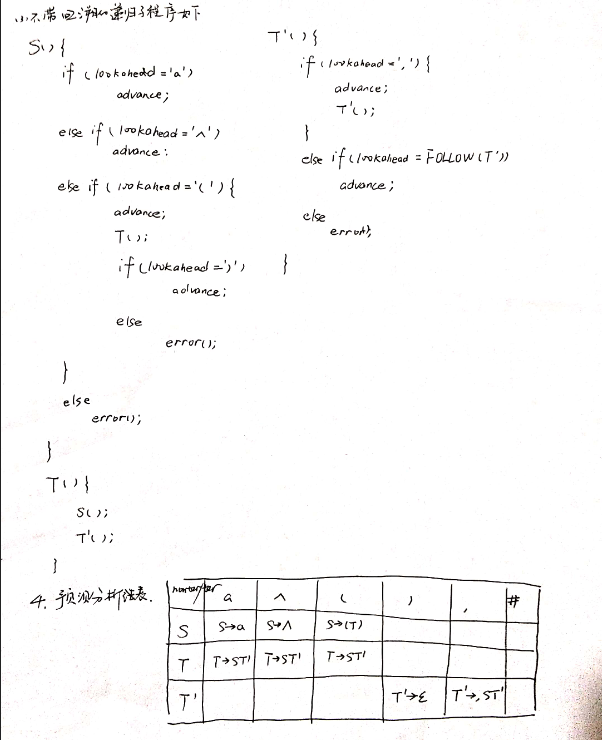 (1)不带回溯的递归子程序如下
S() {
if (lookahead = 'a')
advance;
else if (lookahead = '∧')
advance;
else if (lookahead = '(') {
advance;
T();
if (lookahead = ')')
advance;
else
error();
}
else
error();
}
T() {
S();
T'();
}
T'() {
if (lookahead = ',') {
advance;
T'();
}
else if (lookahead = FOLLOW(T'))
advance;
else
error();
}
4. 预测分析表.
a ∧ ( ) , #
S S→a S→∧ S→(T)
T T→ST' T→ST' T→ST'
T' T'→ε T'→,ST'